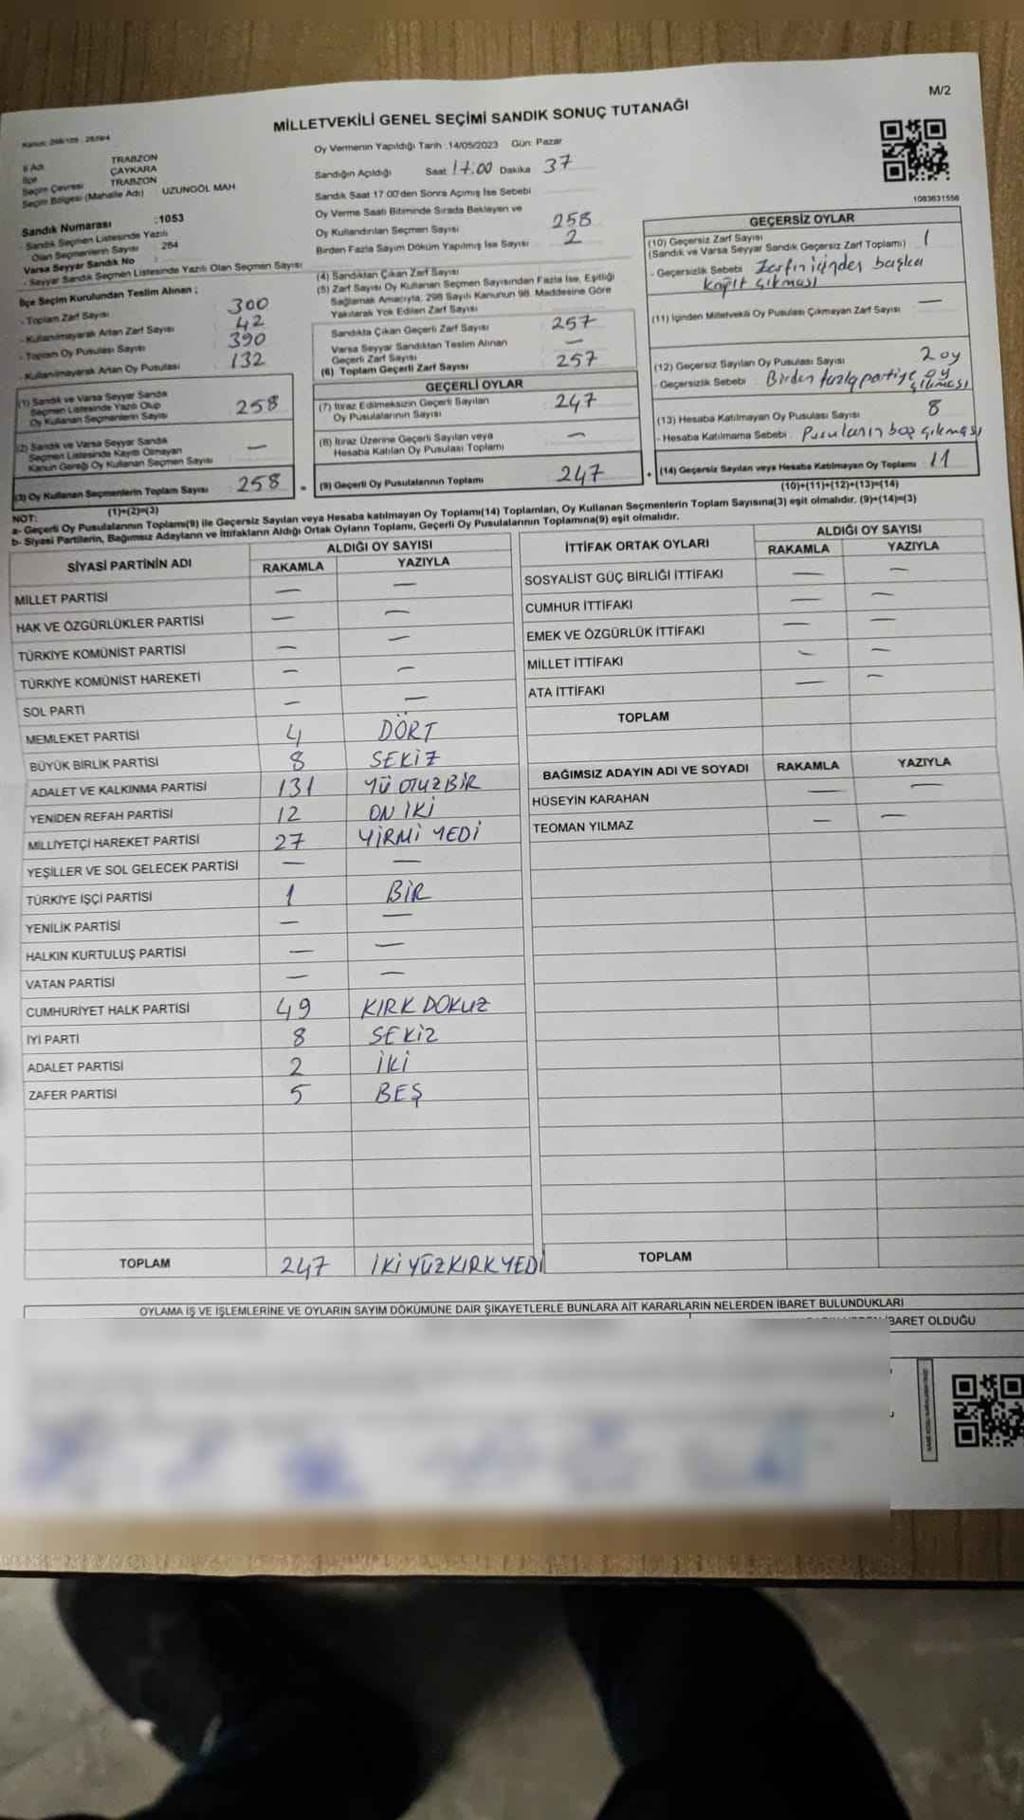 M/2
MİLLETVEKİLİ GENEL SEÇİMİ SANDIK SONUÇ TUTANAĞI
İl Adı TRABZON
İlçe ÇAYKARA
Seçim Çevresi TRABZON
Seçim Bölgesi (Mahalle Adı) UZUNGÖL MAH
Sandık Numarası :1053
- Sandık Seçmen Listesinde Yazılı
Olan Seçmenlerin Sayısı 284
Varsa Seyyar Sandık No
- Seyyar Sandık Seçmen Listesinde Yazılı Olan Seçmen Sayısı
İlçe Seçim Kurulundan Teslim Alınan ;
- Toplam Zarf Sayısı 300
- Kullanılmayarak Artan Zarf Sayısı 42
- Toplam Oy Pusulası Sayısı 390
- Kullanılmayarak Artan Oy Pusulası 132
(1) Sandık ve Varsa Seyyar Sandık
Seçmen Listesinde Yazılı Olup
Oy Kullanan Seçmenlerin Sayısı 258
(2) Sandık ve Varsa Seyyar Sandık
Seçmen Listesinde Kayıtlı Olmayan
Kanun Gereği Oy Kullanan Seçmen Sayısı —
(3) Oy Kullanan Seçmenlerin Toplam Sayısı 258
(1)+(2)=(3)
Oy Vermenin Yapıldığı Tarih :14/05/2023 Gün: Pazar
Sandığın Açıldığı Saat 17.00 Dakika 37
Sandık Saat 17:00'den Sonra Açılmış İse Sebebi
Oy Verme Saati Bitiminde Sırada Bekleyen ve
Oy Kullandırılan Seçmen Sayısı
Birden Fazla Sayım Döküm Yapılmış İse Sayısı
258
2
(4) Sandıktan Çıkan Zarf Sayısı
(5) Zarf Sayısı Oy Kullanan Seçmen Sayısından Fazla İse, Eşitliği
Sağlamak Amacıyla, 298 Sayılı Kanunun 98. Maddesine Göre
Yakılarak Yok Edilen Zarf Sayısı
Sandıkta Çıkan Geçerli Zarf Sayısı 257
Varsa Seyyar Sandıktan Teslim Alınan
Geçerli Zarf Sayısı —
(6) Toplam Geçerli Zarf Sayısı 257
GEÇERLİ OYLAR
(7) İtiraz Edilmeksizin Geçerli Sayılan
Oy Pusulalarının Sayısı 247
(8) İtiraz Üzerine Geçerli Sayılan veya
Hesaba Katılan Oy Pusulası Toplamı —
(9) Geçerli Oy Pusulalarının Toplamı 247
1083631556
GEÇERSİZ OYLAR
(10) Geçersiz Zarf Sayısı
(Sandık ve Varsa Seyyar Sandık Geçersiz Zarf Toplamı) 1
- Geçersizlik Sebebi Zarfın içinden başka
kağıt çıkması
(11) İçinden Milletvekili Oy Pusulası Çıkmayan Zarf Sayısı —
(12) Geçersiz Sayılan Oy Pusulası Sayısı 2 oy
- Geçersizlik Sebebi Birden fazla partiye oy
çıkması
(13) Hesaba Katılmayan Oy Pusulası Sayısı 8
- Hesaba Katılmama Sebebi Pusulanın boş çıkması
(14) Geçersiz Sayılan veya Hesaba Katılmayan Oy Toplamı 11
(10)+(11)+(12)+(13)=(14)
NOT:
a- Geçerli Oy Pusulalarının Toplamı(9) ile Geçersiz Sayılan veya Hesaba katılmayan Oy Toplamı(14) Toplamları, Oy Kullanan Seçmenlerin Toplam Sayısına(3) eşit olmalıdır. (9)+(14)=(3)
b- Siyasi Partilerin, Bağımsız Adayların ve İttifakların Aldığı Ortak Oyların Toplamı, Geçerli Oy Pusulalarının Toplamına(9) eşit olmalıdır.
SİYASİ PARTİNİN ADI ALDIĞI OY SAYISI
RAKAMLA YAZIYLA
MİLLET PARTİSİ — —
HAK VE ÖZGÜRLÜKLER PARTİSİ — —
TÜRKİYE KOMÜNİST PARTİSİ — —
TÜRKİYE KOMÜNİST HAREKETİ — —
SOL PARTİ — —
MEMLEKET PARTİSİ 4 DÖRT
BÜYÜK BİRLİK PARTİSİ 8 SEKİZ
ADALET VE KALKINMA PARTİSİ 131 YÜ OTUZBİR
YENİDEN REFAH PARTİSİ 12 ON İKİ
MİLLİYETÇİ HAREKET PARTİSİ 27 YİRMİ YEDİ
YEŞİLLER VE SOL GELECEK PARTİSİ — —
TÜRKİYE İŞÇİ PARTİSİ 1 BİR
YENİLİK PARTİSİ — —
HALKIN KURTULUŞ PARTİSİ — —
VATAN PARTİSİ — —
CUMHURİYET HALK PARTİSİ 49 KIRK DOKUZ
İYİ PARTİ 8 SEKİZ
ADALET PARTİSİ 2 İKİ
ZAFER PARTİSİ 5 BEŞ
TOPLAM 247 İKİ YÜZ KIRK YEDİ
İTTİFAK ORTAK OYLARI ALDIĞI OY SAYISI
RAKAMLA YAZIYLA
SOSYALİST GÜÇ BİRLİĞİ İTTİFAKI — —
CUMHUR İTTİFAKI — —
EMEK VE ÖZGÜRLÜK İTTİFAKI — —
MİLLET İTTİFAKI — —
ATA İTTİFAKI — —
TOPLAM
BAĞIMSIZ ADAYIN ADI VE SOYADI RAKAMLA YAZIYLA
HÜSEYİN KARAHAN — —
TEOMAN YILMAZ — —
TOPLAM
OYLAMA İŞ VE İŞLEMLERİNE VE OYLARIN SAYIM DÖKÜMÜNE DAİR ŞİKAYETLERLE BUNLARA AİT KARARLARIN NELERDEN İBARET BULUNDUKLARI
İBARET OLDUĞU